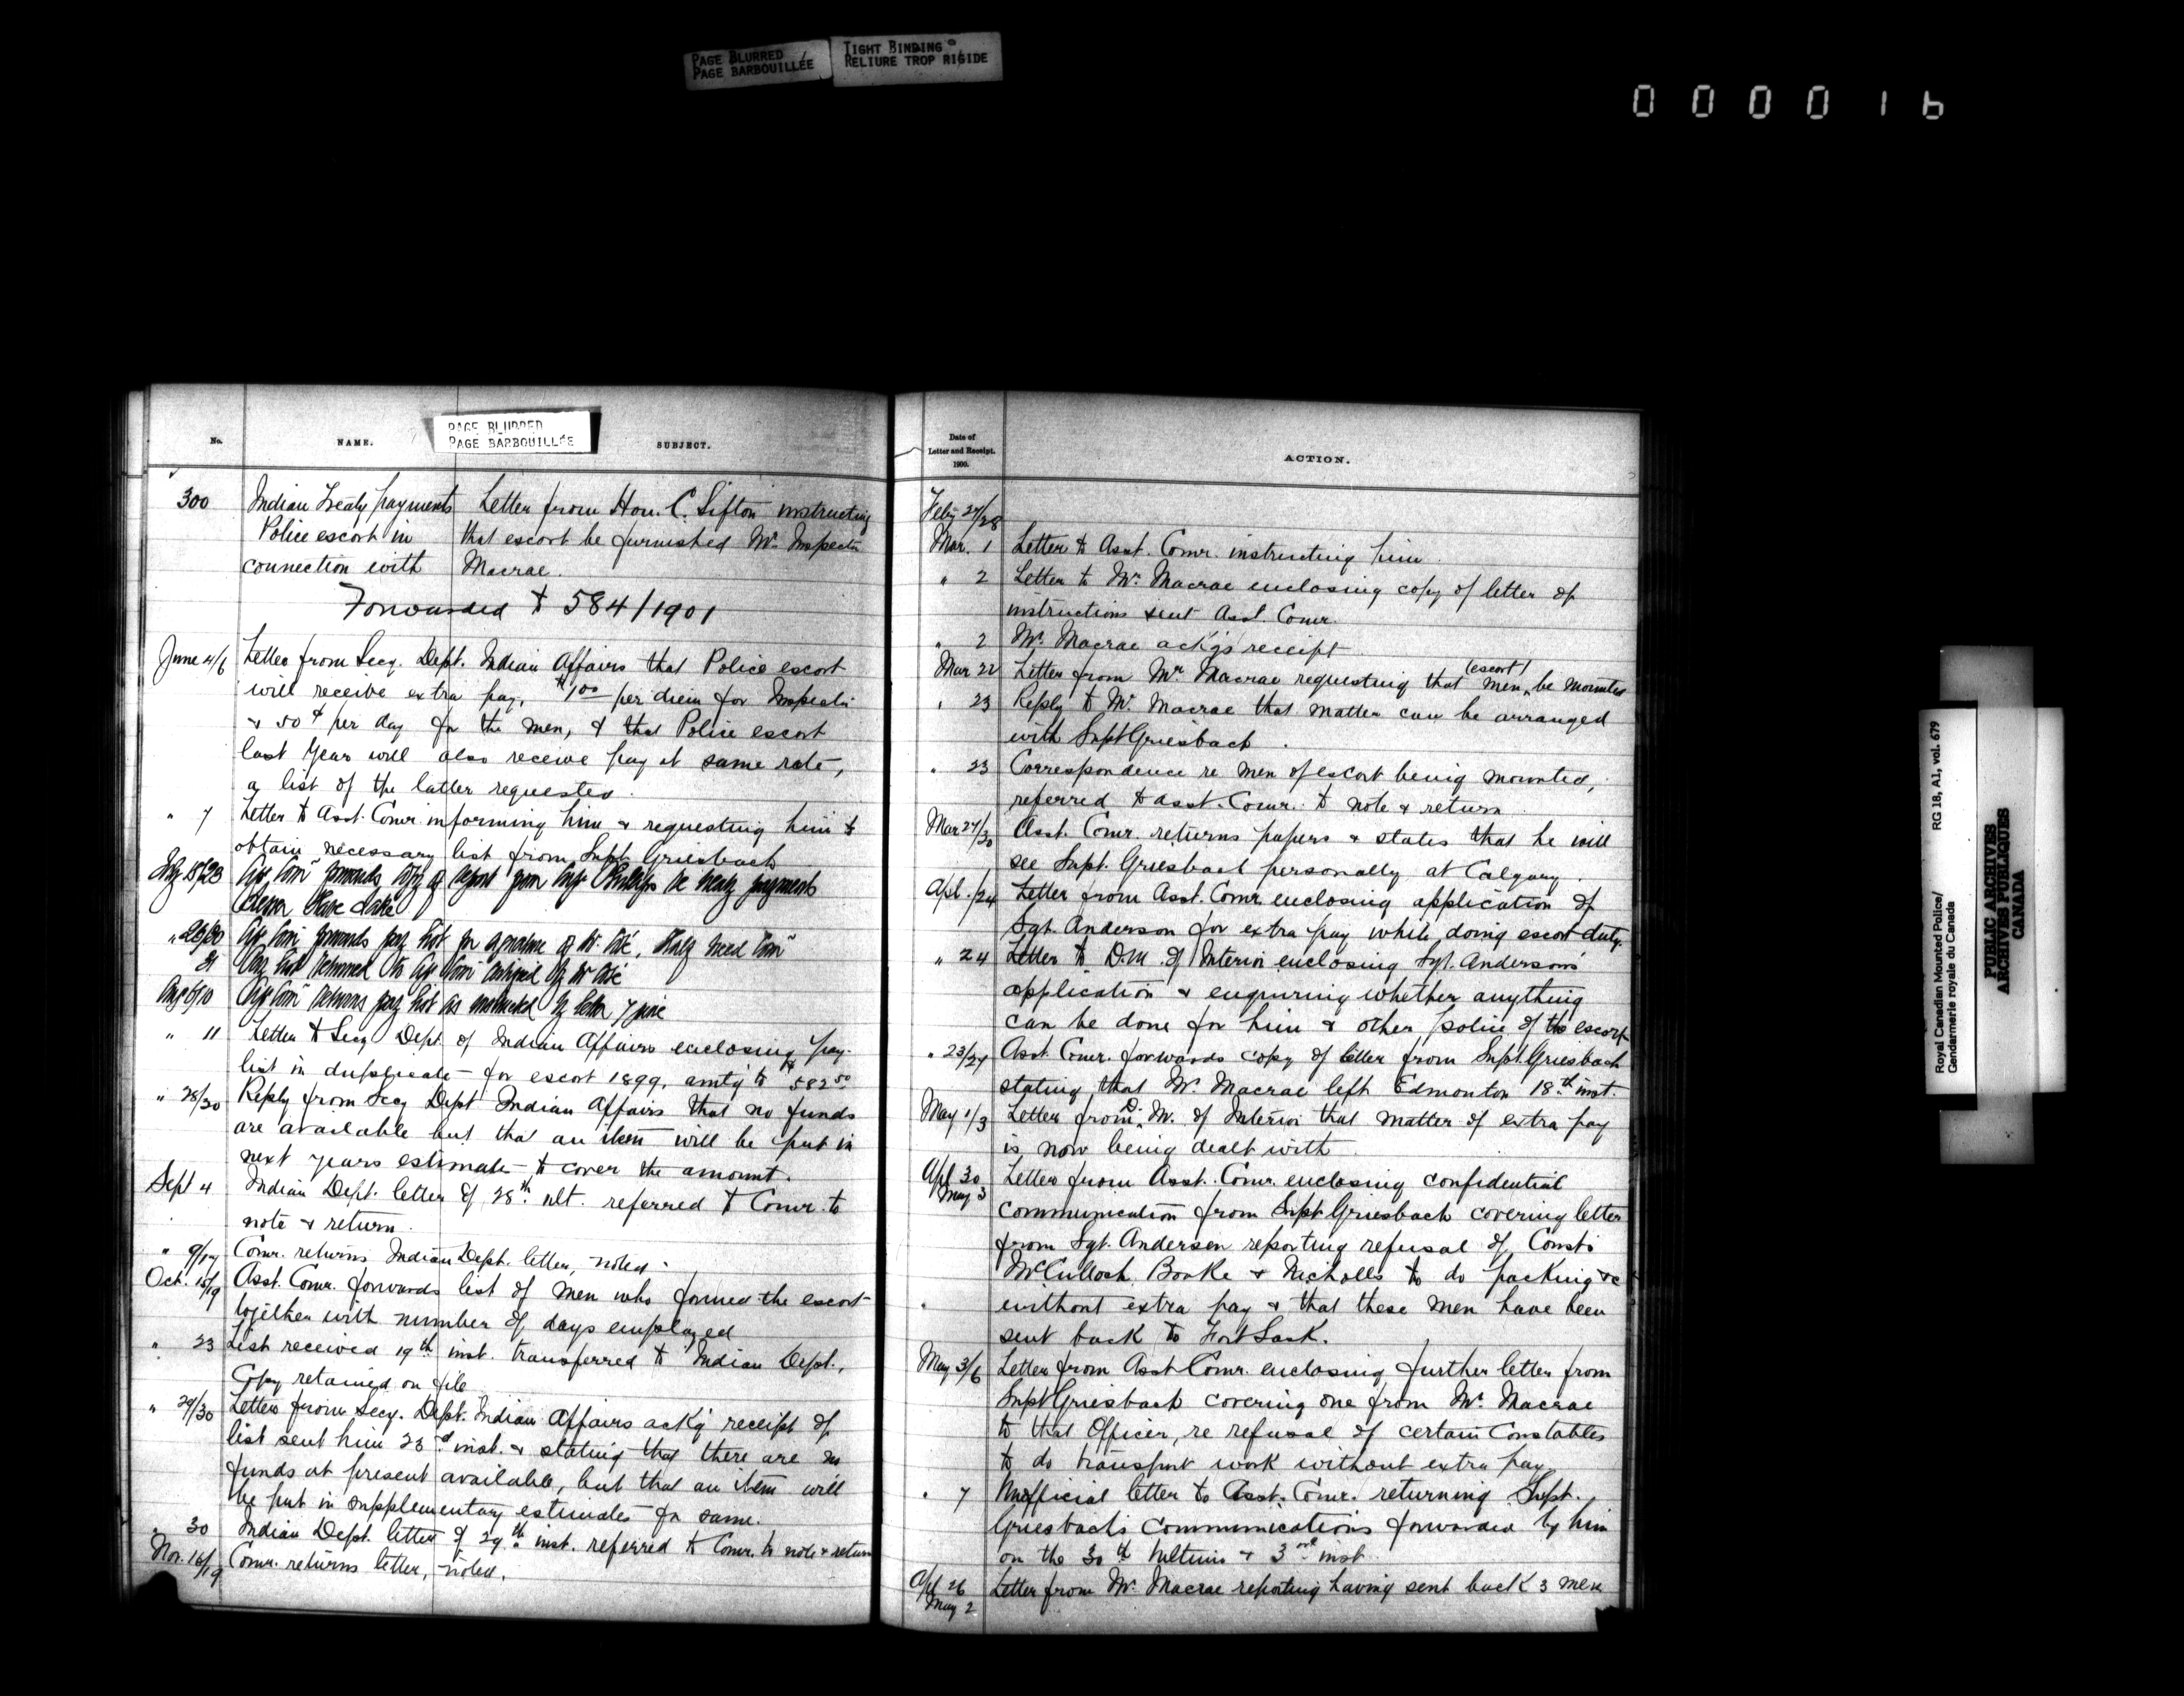 PAGE BLURRED
PAGE BARBOUILLÉE
TIGHT BINDING
RELIURE TROP RIGIDE
000016
PAGE BLURRED
PAGE BARBOUILLÉE
No.
NAME.
SUBJECT.
300 Indian Treaty payments Letter from Hon. C. Sifton instructing
Police escort in that escort be furnished Mr. Inspector
connection with Macrae.
Forwarded to 584/1901
June 4/6 Letter from Secy. Dept. Indian Affairs that Police escort
will receive extra pay, $1.00 per diem for Inspector
& 50¢ per day for the men, & that Police escort
last year will also receive pay at same rate,
a list of the latter requested.
" 7 Letter to Asst. Comr. informing him & requesting him to
obtain necessary list from Supt. Griesbach
18/23 forwards copy of report from Insp. Phillips re treaty payments
Lesser Slave Lake
" 26/30 forwards pay list for signature of
31 Pay list returned to
Aug 6/10 returns pay list as instructed by letter 7 June
" 11 Letter to Secy Dept. of Indian Affairs enclosing pay-
list in duplicate - for escort 1899, amtg to $582.50
" 28/30 Reply from Secy Dept Indian Affairs that no funds
are available but that an item will be put in
next years estimate - to cover the amount.
Sept 4 Indian Dept. letter of 28th ult. referred to Comr. to
note & return.
" 9/17 Comr. returns Indian Dept. letter, noted.
Oct. 15/19 Asst. Comr. forwards list of men who formed the escort
together with number of days employed
" 23 List received 19th inst. transferred to Indian Dept.,
Copy retained on file
" 29/30 Letter from Secy. Dept. Indian Affairs ack'g receipt of
list sent him 23rd inst. & stating that there are no
funds at present available, but that an item will
be put in supplementary estimates for same.
" 30 Indian Dept. letter of 29th inst. referred to Comr. to note & return
Nov. 16/19 Comr. returns letter, noted.
Date of
Letter and Receipt.
1900.
ACTION.
Feby 27/28
Mar. 1 Letter to Asst. Comr. instructing him
" 2 Letter to Mr. Macrae enclosing copy of letter of
instructions sent Asst. Comr.
" 2 Mr. Macrae ack'gs receipt
Mar 22 Letter from Mr Macrae requesting that men (escort) be mounted
" 23 Reply to Mr. Macrae that matter can be arranged
with Supt Griesbach.
" 23 Correspondence re men of escort being mounted,
referred to Asst. Comr. to note & return
Mar 27/30 Asst. Comr. returns papers & states that he will
see Supt. Griesbach personally at Calgary.
Apl. /24 Letter from Asst. Comr. enclosing application of
Sgt. Anderson for extra pay while doing escort duty.
" 24 Letter to D.M. of Interior enclosing Sgt. Anderson's
application & enquiring whether anything
can be done for him & other police of the escort
" 23/27 Asst. Comr. forwards copy of letter from Supt. Griesbach
stating that Mr. Macrae left Edmonton 18th inst.
May 1/3 Letter from D. M. of Interior that matter of extra pay
is now being dealt with
Apl 30
May 3 Letter from Asst. Comr. enclosing confidential
communication from Supt Griesbach covering letter
from Sgt. Anderson reporting refusal of Consts
McCulloch, Boake & Nicholls to do packing &c
without extra pay & that these men have been
sent back to Fort Sask.
May 3/6 Letter from Asst Comr. enclosing further letter from
Supt Griesbach covering one from Mr. Macrae
to that Officer, re refusal of certain Constables
to do transport work without extra pay
" 7 Unofficial letter to Asst. Comr. returning Supt.
Griesbach's communications forwarded by him
on the 30th Ultimo & 3rd inst
Apl 26
May 2 Letter from Mr. Macrae reporting having sent back 3 men
Royal Canadian Mounted Police/
Gendarmerie royale du Canada
RG 18, A1, vol. 679
PUBLIC ARCHIVES
ARCHIVES PUBLIQUES
CANADA